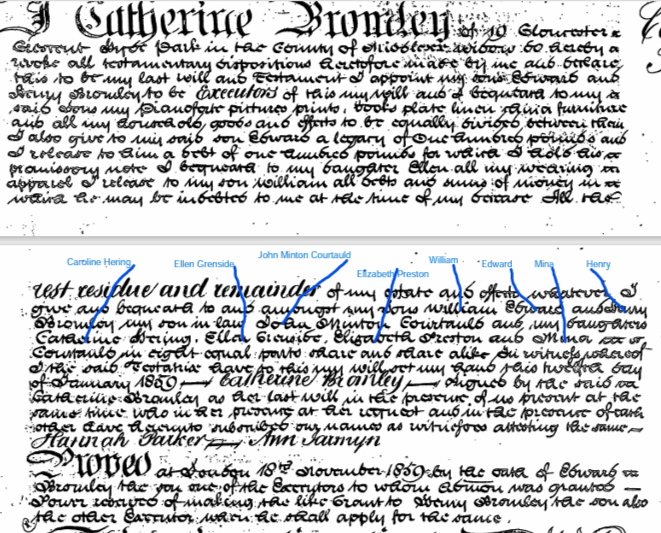 I Catherine Bromley of 19 Gloucester
Crescent Hyde Park in the County of Middlesex Widow do hereby
revoke all testamentary dispositions heretofore made by me and declare
this to be my last will and Testament I appoint my sons Edward and
Henry Bromley to be Executors of this my will and I bequeath to my
said sons my Pianoforte pictures prints, books plate linen china furniture
and all my household goods and effects to be equally divided between them
I also give to my said son Edward a legacy of One hundred pounds and
I release to him a debt of one hundred pounds for which I hold his
promissory note I bequeath to my daughter Ellen all my wearing
apparel I release to my son William all debts and sums of money in
which he may be indebted to me at the time of my decease All the
Caroline Hering
Ellen Grenside
John Minton Courtauld
Elizabeth Preston
William
Edward
Mina
Henry
rest residue and remainder of my estate and effects whatever I
give and bequeath to and amongst my sons William Edward and Henry
Bromley my son in law John Minton Courtauld and my daughters
Catherine Hering, Ellen Grenside, Elizabeth Preston and Mina
Courtauld in eight equal parts share and share alike In witness whereof
I the said Testatrix have to this my will set my hand this twelfth day
of January 1859 Catherine Bromley signed by the said
Catherine Bromley as her last will in the presence of us present at the
same time who in her presence at her request and in the presence of each
other have hereunto subscribed our names as witnesses attesting the same
Hannah Parker Ann Jarmyn
Proved at London 18th November 1859 by the oath of Edward
Bromley the son one of the Executors to whom Admon was granted
Power reserved of making the like Grant to Henry Bromley the son also
the other Executor when he shall apply for the same.